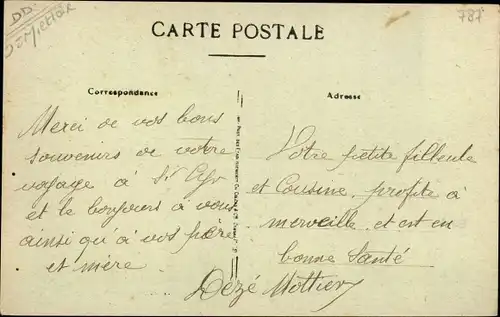 787
CARTE POSTALE
Correspondance
Adresse
Merci de vos bons
souvenirs de votre
voyage à St Cyr
et le bonjours à vous
ainsi qu'à vos père
et mère
Votre petite filleule
et Cousine profite à
merveille et est en
bonne Santé
Dezé Mottier